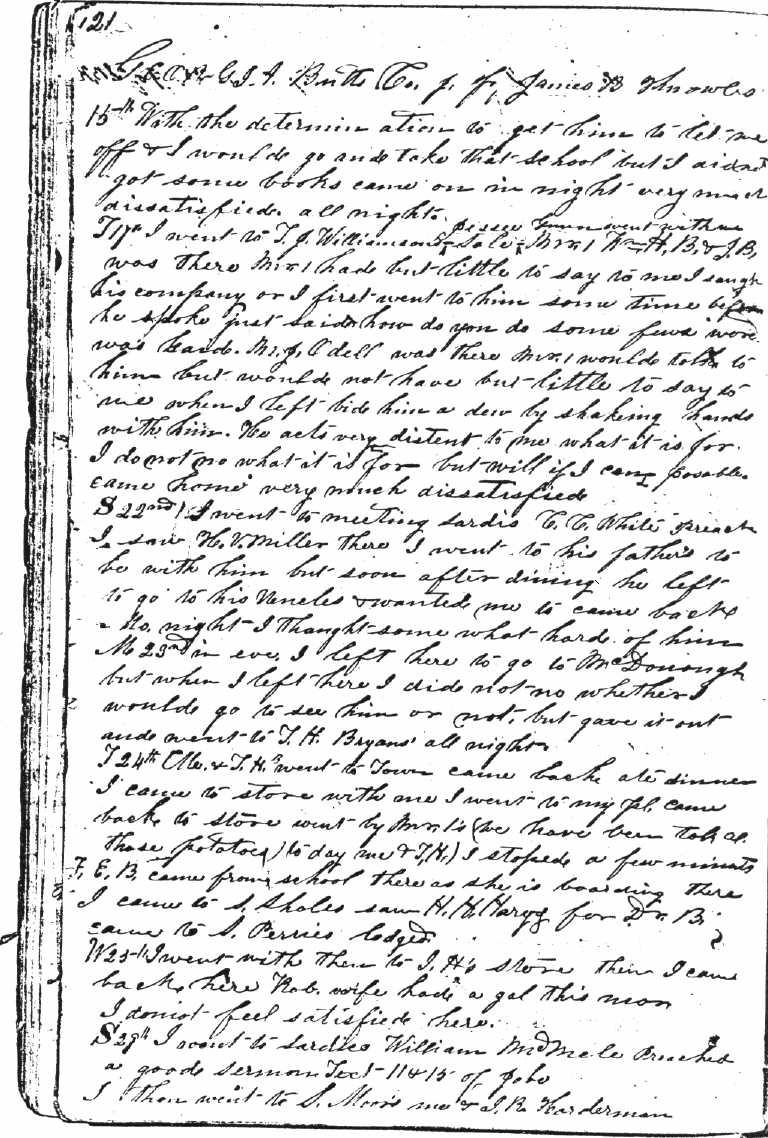 121
Butts Co. James B Knowles
15th With the determin ation to get him to let me
off & I would go and take that school but I did not
got some books came on in night very much
dissatisfied. all night.
Jesse Gunn went with me
T 17th I went to T. J. Williamson's Sale Mr. 1 Wm H. B. & J. B.
was there Mr. 1 had but little to say to me I saugh
his company or I first went to him some time before
he spoke just said how do you do some few words
was said. M. J. Odell was there Mr. 1 would talk to
him but would not have but little to say to
me when I left bide him a dew by shaking hands
with him. He acts very distent to me what it is for.
I do not no what it is for but will if I can posable.
came home very much dissatisfied
S 22nd I went to meeting Sardis C. C. White preach
I saw H. V. Miller there I went to his father's to
be with him but soon after dining he left
to go to his Uencles & wanted me to came back
to. night I thaught some what hard of him
M 23rd in eve. I left here to go to McDonough
but when I left here I did not no whether I
would go to see him or not, but gave it out
and went to T. H. Bryans' all night.
T 24th & T. H. went to Town came back ate dinner
I came to store with me I went to my pl. came
back to store went by Mr. 1's (we have been
those potatoes) to day me & T. H.) I stoped a few minuts
F. E. B. came from school there as she is boarding there
I came to S. Sholes saw H. H. for Dr. B.
came to S. Perries lodged
W 25th I went with them to J. H's store then I came
back here Rob. wife had a gal this mon
I do not feel satisfied here.
S 29th I went to Sardies William McMele Preached
a good sermon Text 11 & 15 of Jobe
I then went to S. Moors me & J. R. Harderman